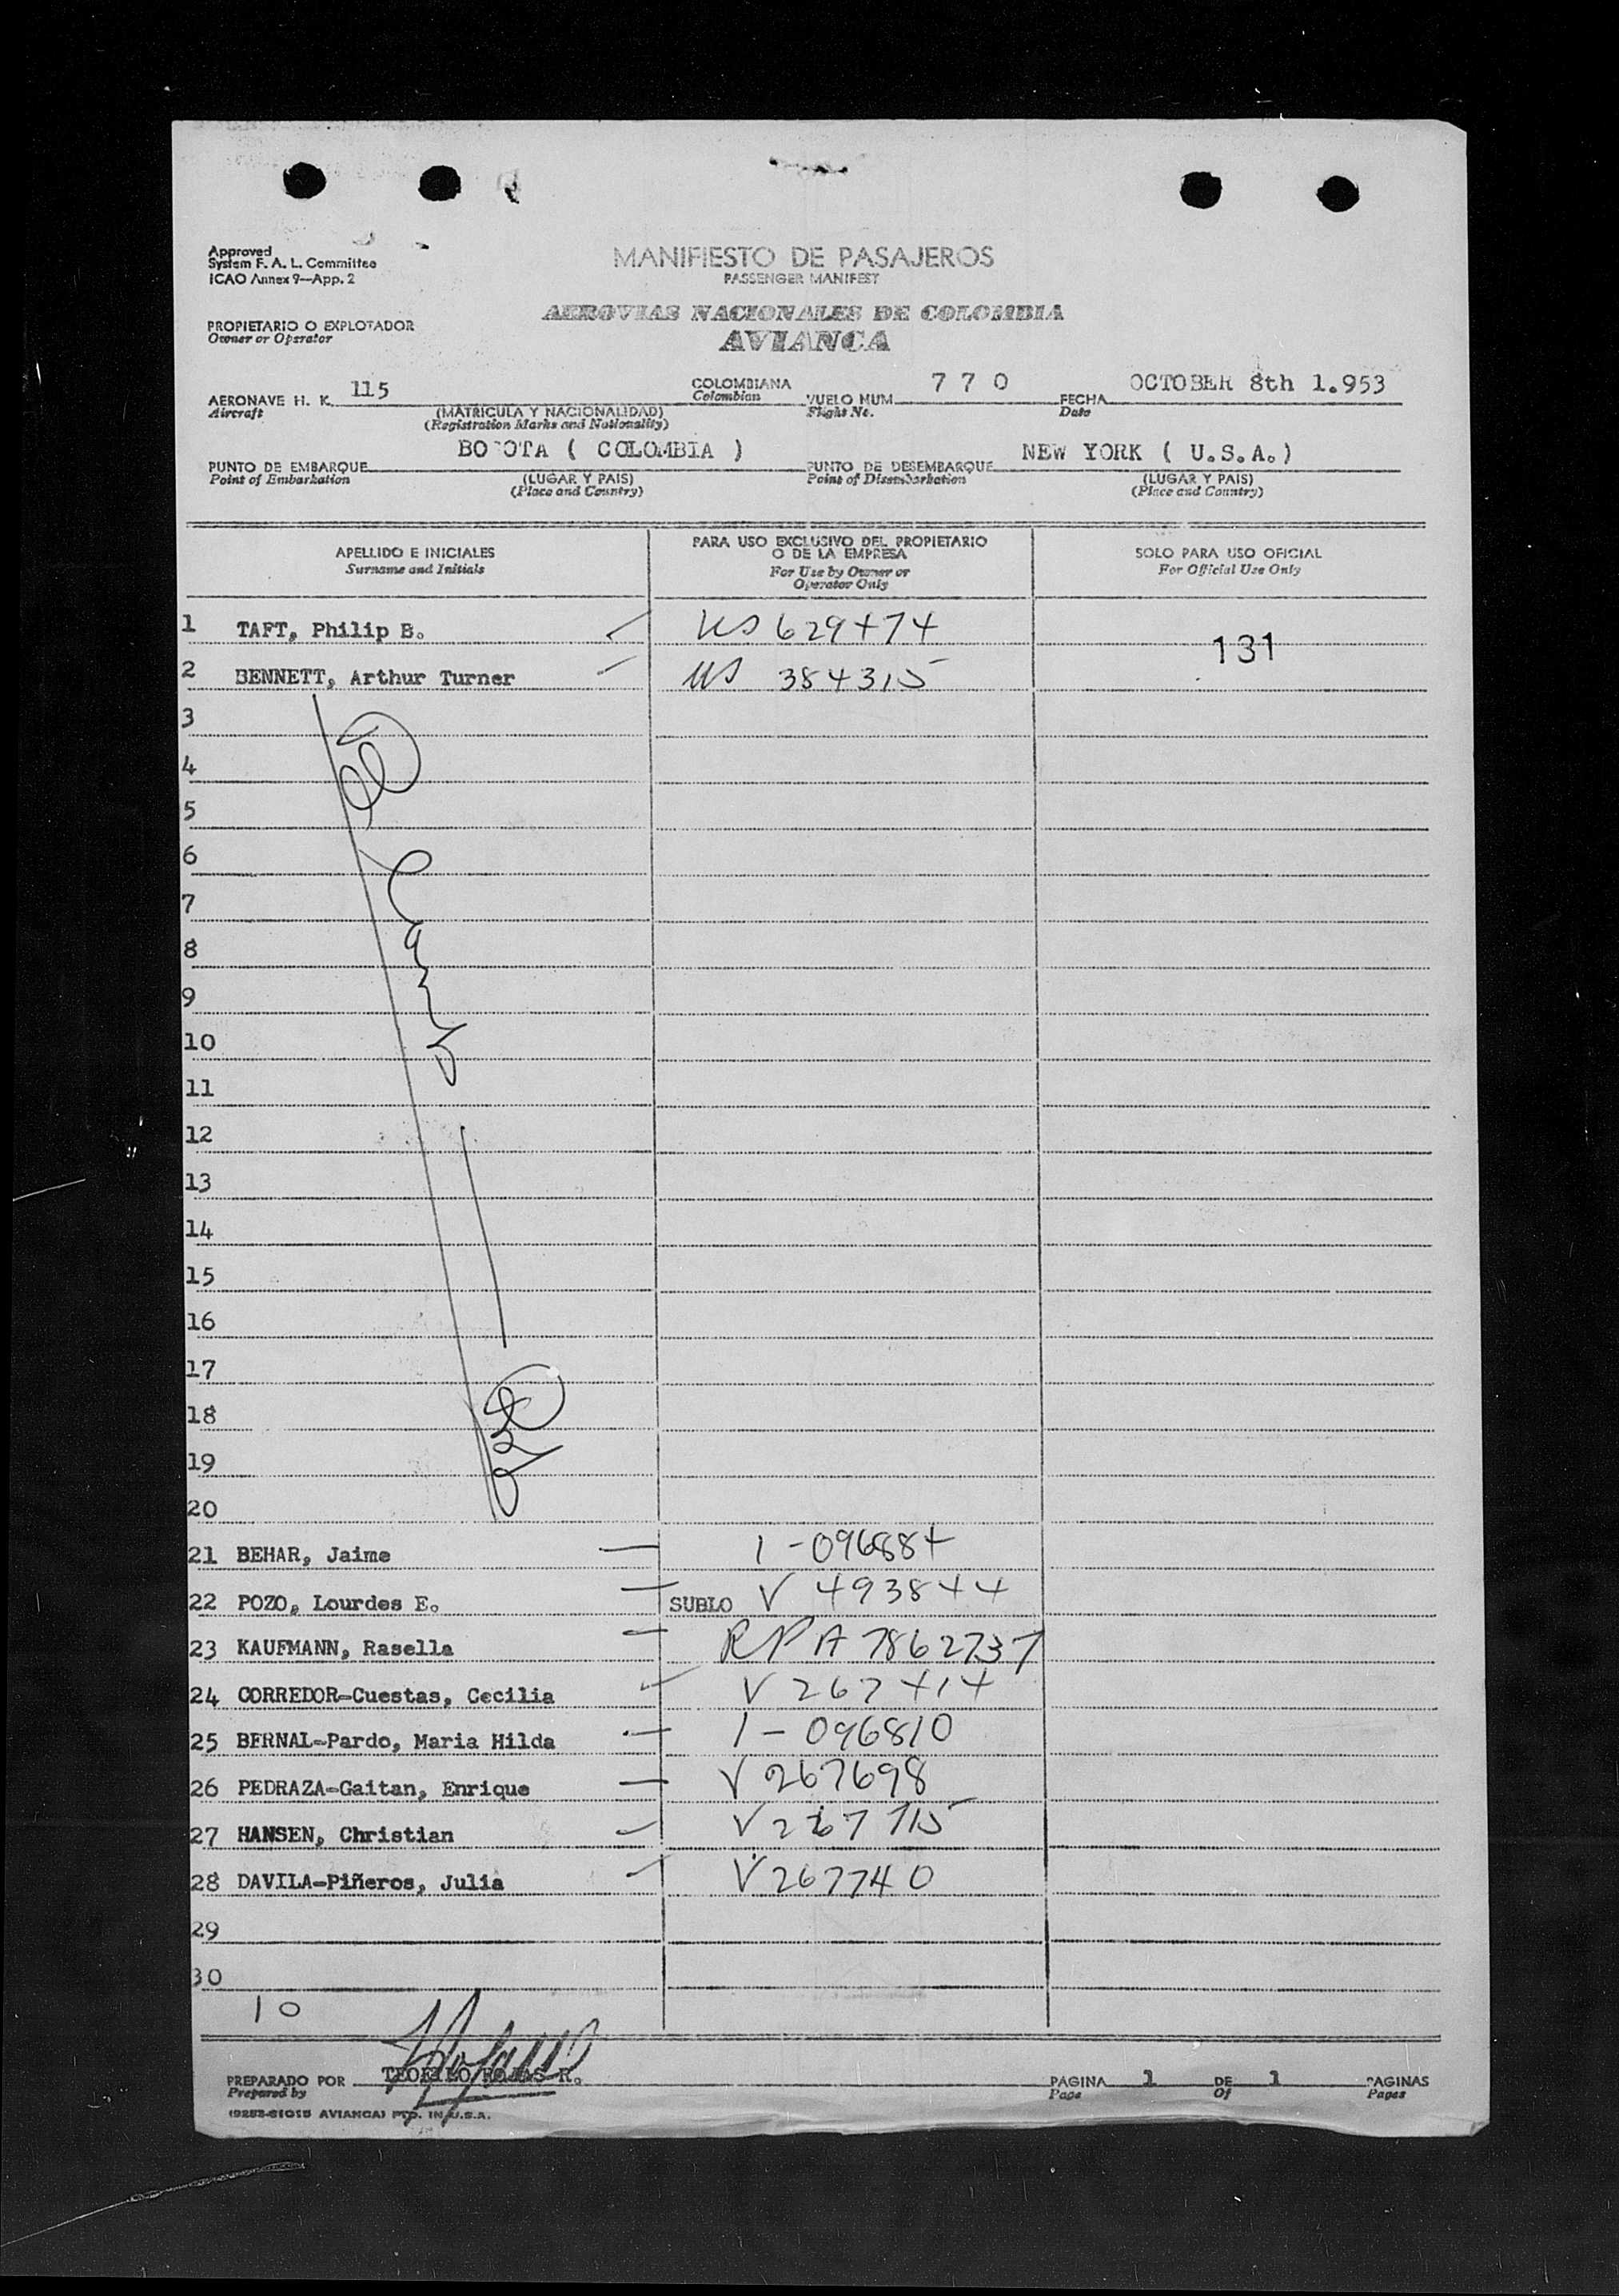 Approved
System F. A. L. Committee
ICAO Annex 9—App. 2
MANIFIESTO DE PASAJEROS
PASSENGER MANIFEST
AEROVIAS NACIONALES DE COLOMBIA
AVIANCA
PROPIETARIO O EXPLOTADOR
Owner or Operator
AERONAVE H. K. 115 COLOMBIANA VUELO NUM. 770 FECHA OCTOBER 8th 1.953
Aircraft (MATRICULA Y NACIONALIDAD) Colombian Flight No. Date
(Registration Marks and Nationality)
PUNTO DE EMBARQUE BOGOTA ( COLOMBIA ) PUNTO DE DESEMBARQUE NEW YORK ( U.S.A.)
Point of Embarkation (LUGAR Y PAIS) Point of Disembarkation (LUGAR Y PAIS)
(Place and Country) (Place and Country)
APELLIDO E INICIALES PARA USO EXCLUSIVO DEL PROPIETARIO O DE LA EMPRESA SOLO PARA USO OFICIAL
Surname and Initials For Use by Owner or Operator Only For Official Use Only
1 TAFT, Philip B. US 629474
131
2 BENNETT, Arthur Turner US 384315
3
4
5
6
7
8
9
10
11
12
13
14
15
16
17
18
19
20
21 BEHAR, Jaime 1-096884
22 POZO, Lourdes E. SUBLO V 493844
23 KAUFMANN, Rasella RP A7862737
24 CORREDOR-Cuestas, Cecilia V 267414
25 BERNAL-Pardo, Maria Hilda 1-096810
26 PEDRAZA-Gaitan, Enrique V 267698
27 HANSEN, Christian V 267715
28 DAVILA-Piñeros, Julia V 267740
29
30
10
PREPARADO POR TEOFILO ROJAS R. PAGINA 1 DE 1 PAGINAS
Prepared by Page Of Pages
(9253-61015 AVIANCA) PTD. IN U.S.A.